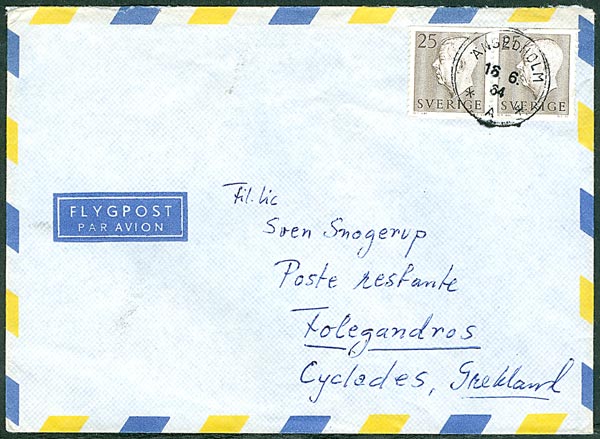 25
SVERIGE
SVERIGE
ÄNGELHOLM
16 6.
64
* A *
FLYGPOST
PAR AVION
Fil. Lic
Sven Snogerup
Poste restante
Folegandros
Cyclades, Grekland